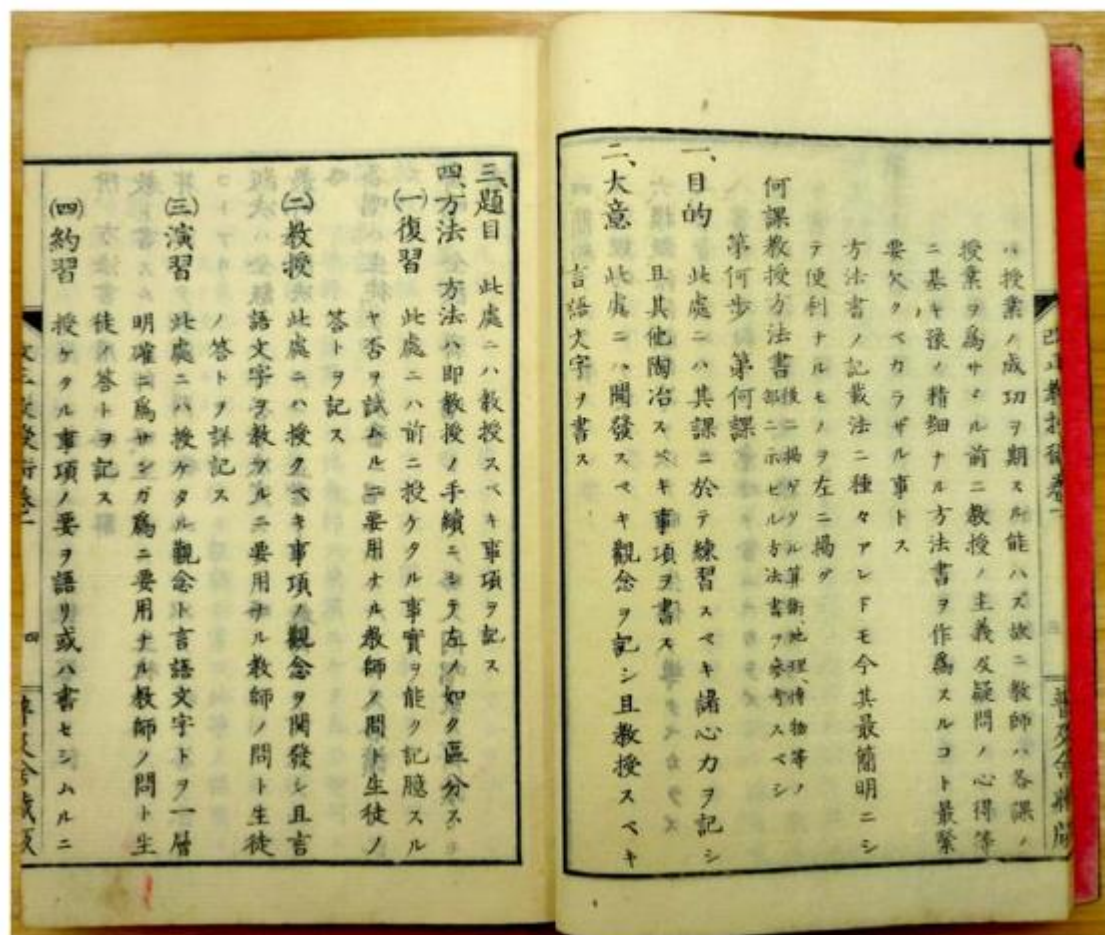 ハ授業ノ成功ヲ期スル能ハズ故ニ教師ハ各課ノ
授業ヲ爲サヾル前ニ教授ノ主義及疑問ノ心得等
ニ基キ豫ノ精細ナル方法書ヲ作爲スルコト最緊
要欠クベカラザル事トス
方法書ノ記載法ニ種々アレドモ今其最簡明ニシ
テ便利ナルモノヲ左ニ掲グ
何課教授方法書 後ニ掲ゲタル算術、地理、博物等ノ
部ニ示セル方法書ヲ参考スベシ
第何歩 第何課
一、目的 此處ニハ其課ニ於テ練習スベキ諸心力ヲ記シ
且其他陶冶スベキ事項ヲ書ス
二、大意 此處ニハ開發スベキ觀念ヲ記シ且教授スベキ
言語文字ヲ書ス
三、題目 此處ニハ教授スベキ事項ヲ記ス
四、方法 方法ハ即教授ノ手續ニシテ左ノ如ク區分ス
㈠復習 此處ニハ前ニ授ケタル事實ヲ能ク記臆スル
ヤ否ヲ試ムルニ要用ナル教師ノ問ト生徒ノ
答トヲ記ス
㈡教授 此處ニハ授クベキ事項ノ觀念ヲ開發シ且言
語文字ヲ教フルニ要用ナル教師ノ問ト生徒
ノ答トヲ詳記ス
㈢演習 此處ニハ授ケタル觀念ト言語文字トヲ一層
明確ニ爲サシガ爲ニ要用ナル教師ノ問ト生
徒ノ答トヲ記ス
㈣約習 授ケタル事項ノ要ヲ語リ或ハ書セシムルニ
四